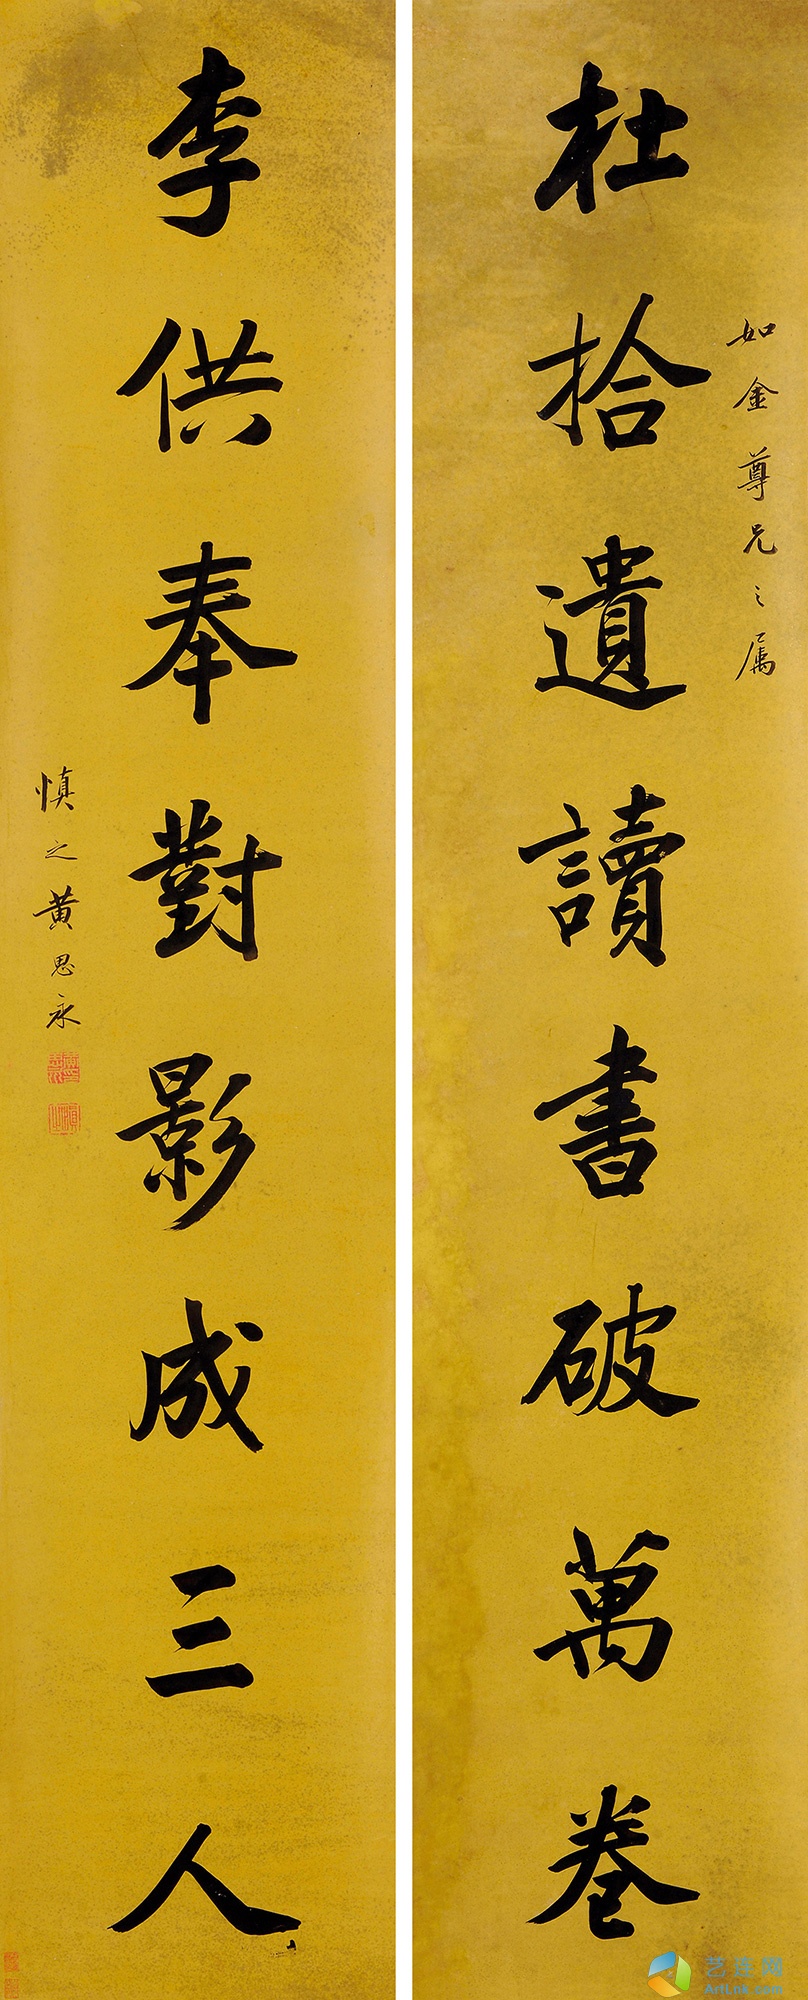 如金尊兄之属
杜拾遺讀書破萬卷
李供奉對影成三人
慎之黄思永
艺连网
ArtLnk.com